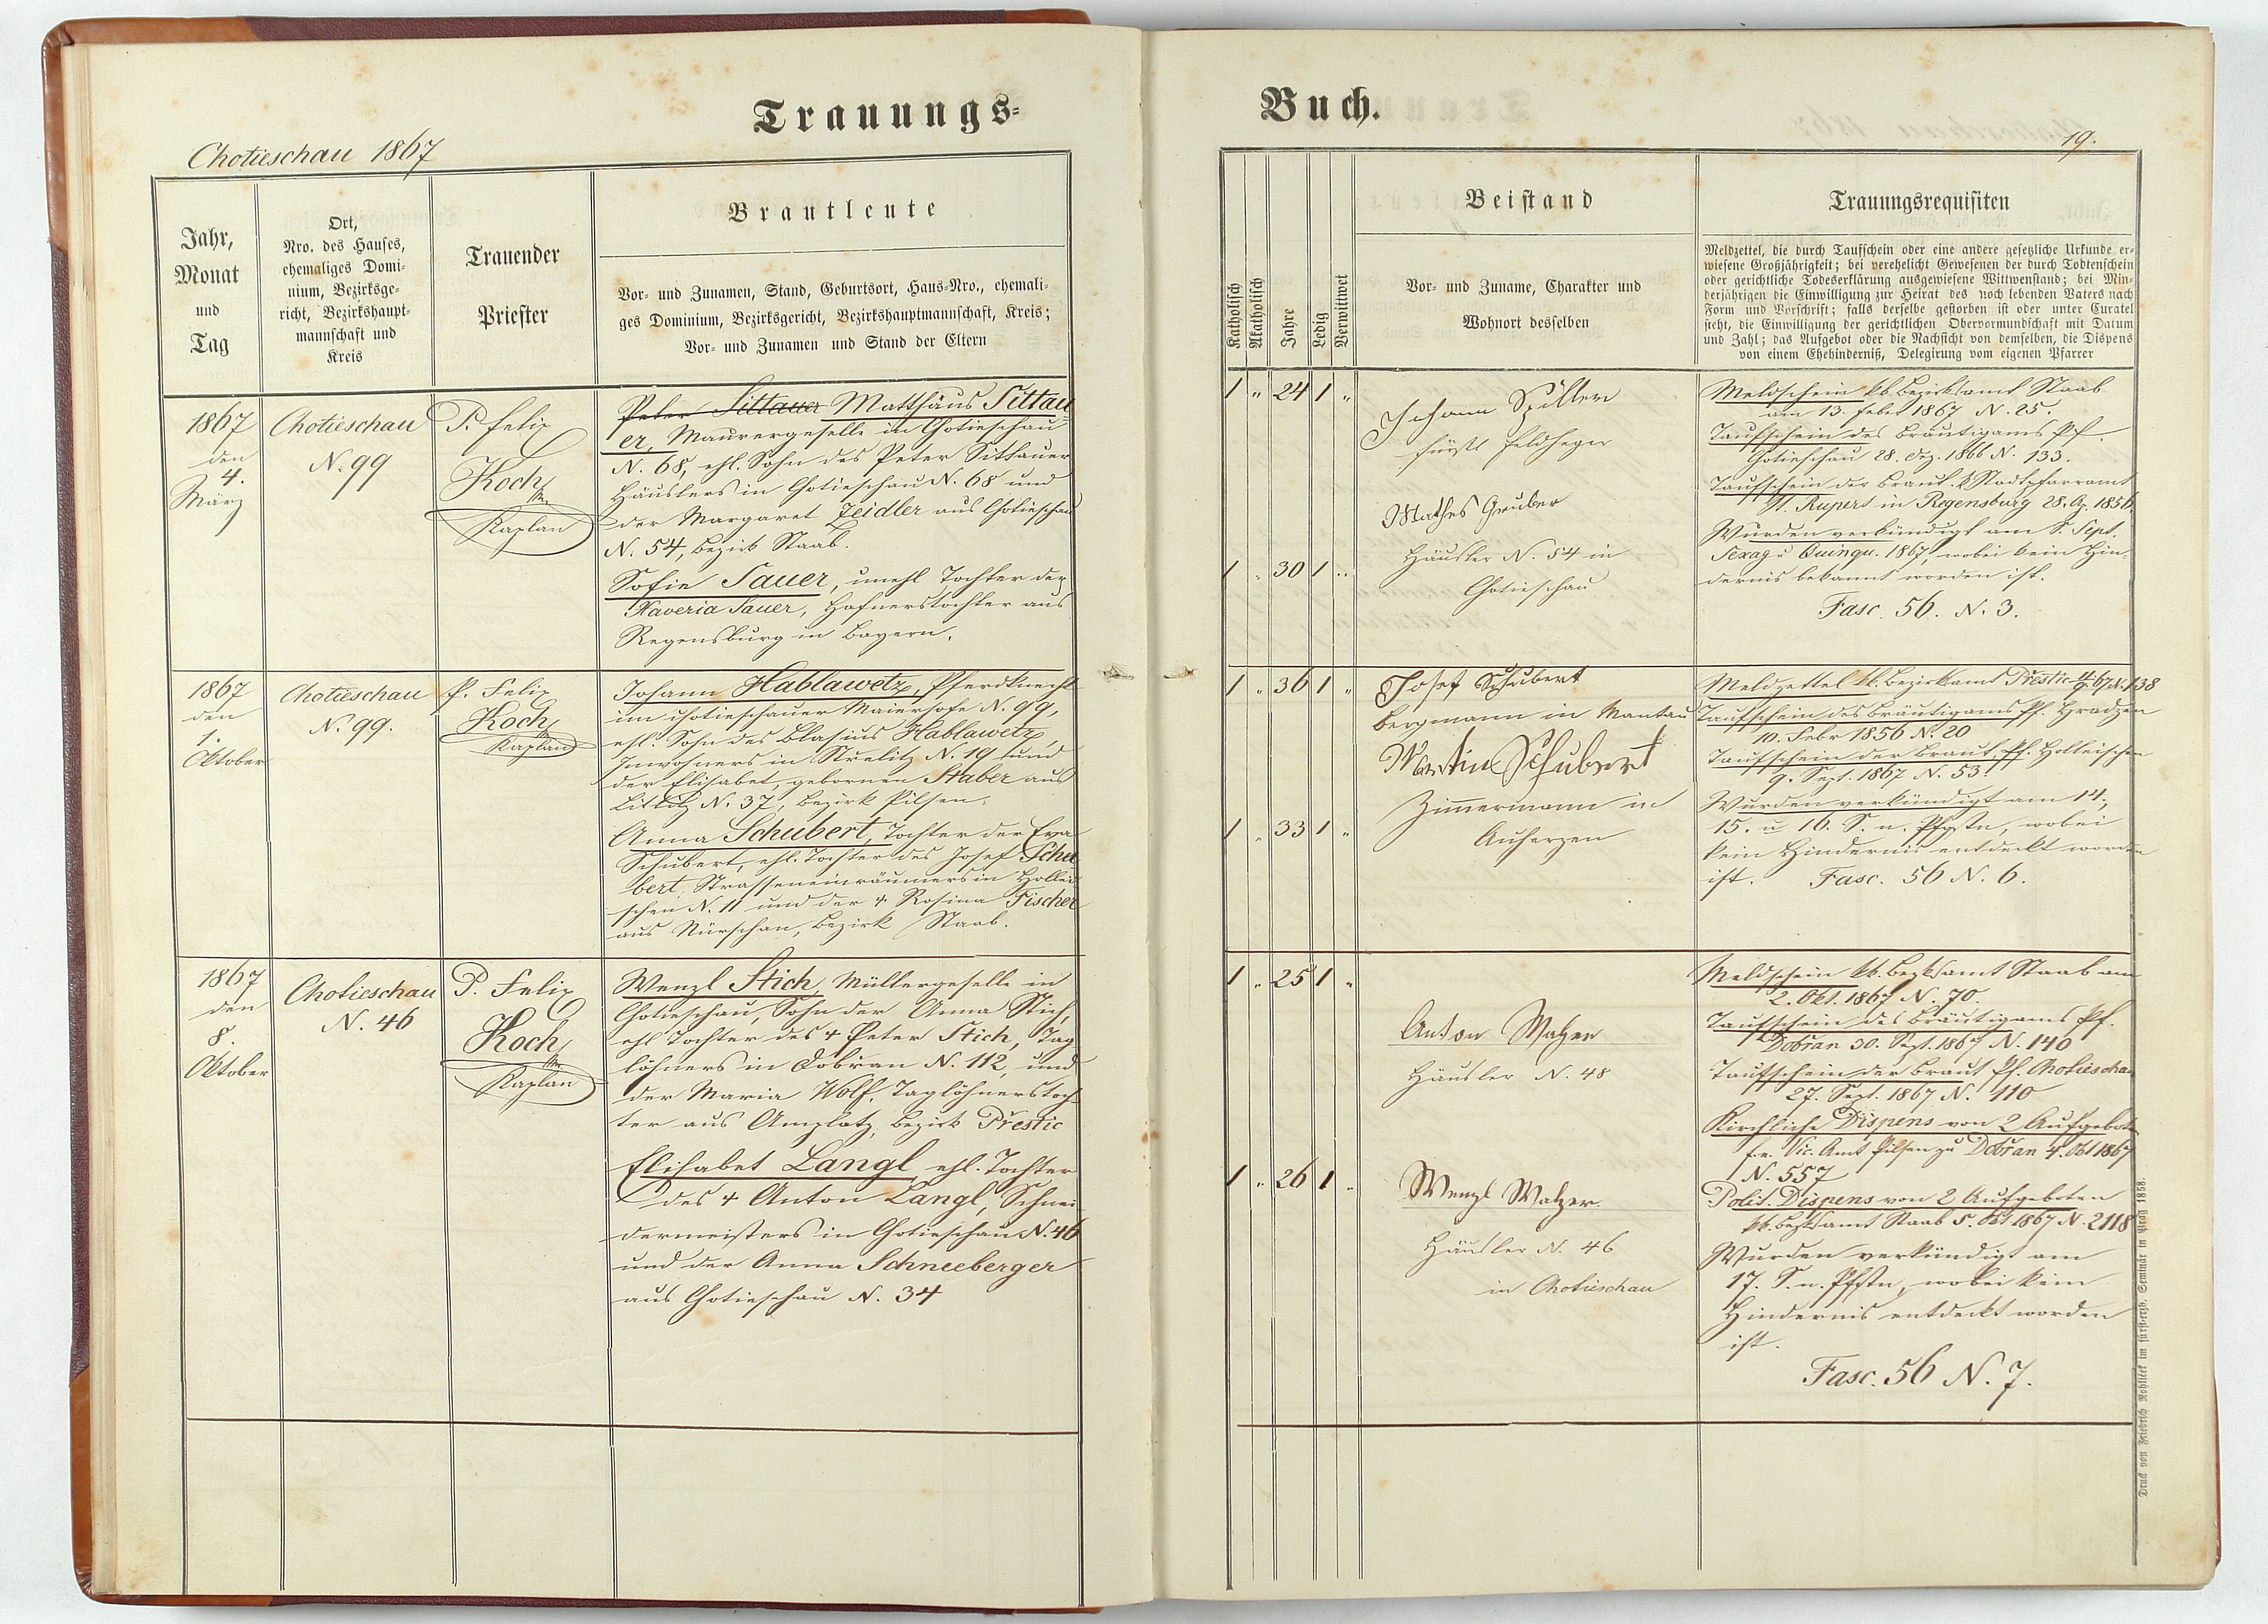 Trauungs-
Chotieschau 1867
Jahr,
Monat
und
Tag
Ort,
Nro. des Hauses,
ehemaliges Domi-
nium, Bezirksge-
richt, Bezirkshaupt-
mannschaft und
Kreis
Trauender
Priester
Brautleute
Vor- und Zunamen, Stand, Geburtsort, Haus-Nro., ehemali-
ges Dominium, Bezirksgericht, Bezirkshauptmannschaft, Kreis;
Vor- und Zunamen und Stand der Eltern
1867
den
4.
März
Chotieschau
N. 99
P. Felix
Koch
Kaplan
Peter Sittauer Matthäus Sittau
er, Maurergeselle in Chotieschau
N. 68, ehl. Sohn des Peter Sittauer
Häuslers in Chotieschau N. 68 und
der Margaret Zeidler aus Chotieschau
N. 54, Bezirk Staab.
Sofie Sauer, unehl Tochter der
Xaveria Sauer, Hafnerstochter aus
Regensburg in Bayern.
1867
den
1.
Oktober
Chotieschau
N. 99.
P. Felix
Koch
Kaplan
Johann Hablawetz, Pferdknecht
im chotieschauer Maierhofe N. 99,
ehl. Sohn des Blasius Hablawetz,
Inwohners in Strelitz N. 19 und
der Elisabet, gebornen Staber aus
Littitz N. 37, Bezirk Pilsen.
Anna Schubert, Tochter der Eva
Schubert, ehl. Tochter des Josef Schu
bert, Strasseneinräumers in Hollei
schen N. 11 und der + Rosina Fischer
aus Nürschan, Bezirk Staab.
1867
den
8.
Oktober
Chotieschau
N. 46
P. Felix
Koch
Kaplan
Wenzl Stich, Müllergeselle in
Chotieschau, Sohn der Anna Stich,
ehl Tochter des + Peter Stich, Tag
löhners in Dobřan N. 112, und
der Maria Wolf, Taglöhnerstoch
ter aus Amplatz, Bezirk Přestic
Elisabet Langl, ehl. Tochter
des + Anton Langl, Schnei
dermeisters in Chotieschau N. 46
und der Anna Schneeberger
aus Chotieschau N. 34
Buch.
19.
Katholisch
Akatholisch
Jahre
Ledig
Verwittwet
Beistand
Vor- und Zuname, Charakter und
Wohnort desselben
Trauungsrequisiten
Meldzettel, die durch Taufschein oder eine andere gesetzliche Urkunde er-
wiesene Großjährigkeit; bei verehelicht Gewesenen der durch Todtenschein
oder gerichtliche Todeserklärung ausgewiesene Wittwenstand; bei Min-
derjährigen die Einwilligung zur Heirat des noch lebenden Vaters nach
Form und Vorschrift; falls derselbe gestorben ist oder unter Curatel
steht, die Einwilligung der gerichtlichen Obervormundschaft mit Datum
und Zahl; das Aufgebot oder die Nachsicht von demselben, die Dispens
von einem Ehehinderniß, Delegirung vom eigenen Pfarrer
1 " 24 1 "
Johann Spiller
fürstl Feldheger
Mathes Gruber
1 " 30 1 "
Häusler N. 54 in
Chotieschau
Meldschein kk. Bezirksamt Staab
am 13. Feber 1867 N. 25.
Taufschein des Bräutigams Pf.
Chotieschau 28. Dez. 1866 N. 133.
Taufschein der Braut. k Stadtpfarramt
St. Rupert in Regensburg 28. 1856.
Wurden verkündigt am S. Sept.
Sexag u Quinqu. 1867, wobei kein Hin-
dernis bekannt worden ist.
Fasc. 56. N. 3.
1 " 36 1 "
Josef Schubert
Bergmann in Mantau
Martin Schubert
Zimmermann in
1 " 33 1 "
Auherzen
Meldzettel kk. Bezirksamt Přestic N. 138
Taufschein des Bräutigams Pf. Hradzen
10. Febr 1856 N. 20
Taufschein der Braut Pf. Holleischen
9. Sept. 1867 N. 53.
Wurden verkündigt am 14.,
15. u 16. S. n. Pfgstn, wobei
kein Hindernis entdeckt worden
ist. Fasc. 56 N. 6.
1 " 25 1 "
Anton Watzer
Häusler N. 48
1 " 26 1 "
Wenzl Watzer.
Häusler N. 46
in Chotieschau
Meldschein kk. Bezksamt Staab am
2. Okt. 1867 N. 70.
Taufschein des Bräutigams Pf.
Dobřan 30. Sept. 1867 N. 140
Taufschein der Braut Pf. Chotieschau
27. Sept. 1867 N. 110
Kirchliche Dispens von 2 Aufgeboten
f.e. Vic. Amt Pilsen zu Dobřan 4. Okt 1867
N. 557
Polit. Dispens von 2 Aufgeboten
kk. Bezksamt Staab 5. Okt 1867 N. 2118
Wurden verkündigt am
17. S. n. Pfgstn, wobei kein
Hindernis entdeckt worden
ist.
Fasc. 56 N. 7.
Druck von Friedrich Rohlíček im fürsterzb. Seminär in Prag 1858.